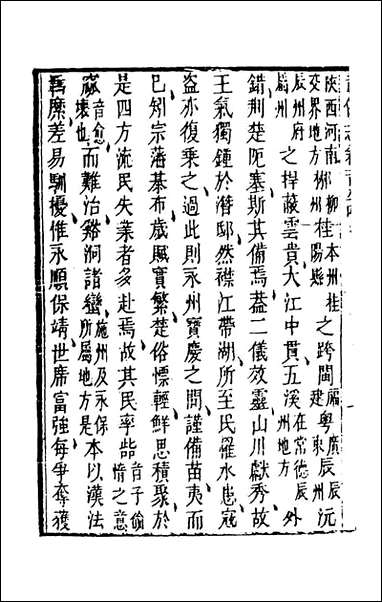 陝西河南交界地方郴柳州桂本州桂陽縣之跨閩福建粵廣東辰辰州沅
辰州府屬州之捍蔽雲貴大江中貫五溪在常德辰州地方外
錯荆楚阨塞斯其備焉葢二儀效靈山川獻秀故
王氣獨鍾於潛邸然襟江帶湖所至民罹水患寇
盗亦復乗之過此則永州寶慶之間謹備苗夷而
巳矧宗藩棊布歲賦實繁楚俗慓輕鮮思積聚於
是四方流民失業者多赴焉故其民率呰音子偷惰之意
窳音愈壞也而難治谿洞諸蠻施州及永保所屬地方是本以漢法
羈縻差易馴擾惟永順保靖世席富強每爭奪獲